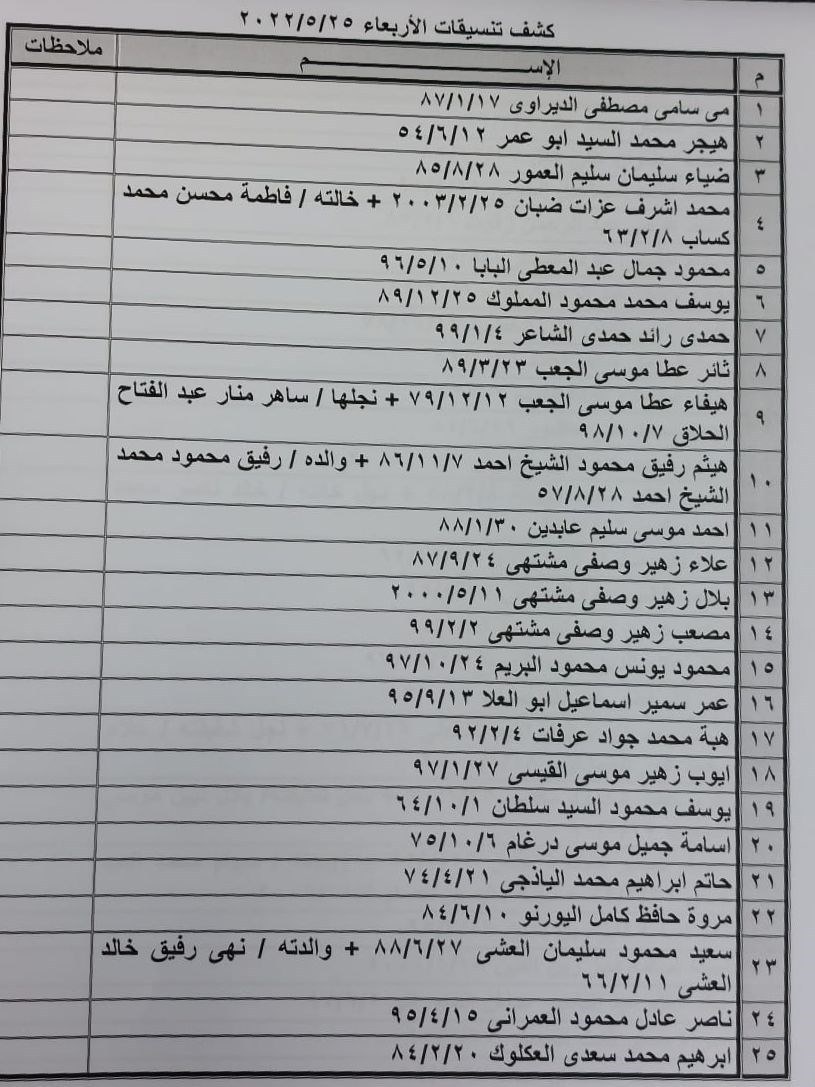 كشف تنسيقات الأربعاء ٢٠٢٢/٥/٢٥
م الإســـــم ملاحظات
١ مى سامى مصطفى الديراوى ٨٧/١/١٧
٢ هيجر محمد السيد ابو عمر ٥٤/٦/١٢
٣ ضياء سليمان سليم العمور ٨٥/٨/٢٨
٤ محمد اشرف عزات ضبان ٢٠٠٣/٢/٢٥ + خالته / فاطمة محسن محمد
كساب ٦٣/٢/٨
٥ محمود جمال عبد المعطى البابا ٩٦/٥/١٠
٦ يوسف محمد محمود المملوك ٨٩/١٢/٢٥
٧ حمدى رائد حمدى الشاعر ٩٩/١/٤
٨ ثائر عطا موسى الجعب ٨٩/٣/٢٣
٩ هيفاء عطا موسى الجعب ٧٩/١٢/١٢ + نجلها / ساهر منار عبد الفتاح
الحلاق ٩٨/١٠/٧
١٠ هيثم رفيق محمود الشيخ احمد ٨٦/١١/٧ + والده / رفيق محمود محمد
الشيخ احمد ٥٧/٨/٢٨
١١ احمد موسى سليم عابدين ٨٨/١/٣٠
١٢ علاء زهير وصفى مشتهى ٨٧/٩/٢٤
١٣ بلال زهير وصفى مشتهى ٢٠٠٠/٥/١١
١٤ مصعب زهير وصفى مشتهى ٩٩/٢/٢
١٥ محمود يونس محمود البريم ٩٧/١٠/٢٤
١٦ عمر سمير اسماعيل ابو العلا ٩٥/٩/١٣
١٧ هبة محمد جواد عرفات ٩٢/٢/٤
١٨ ايوب زهير موسى القيسى ٩٧/١/٢٧
١٩ يوسف محمود السيد سلطان ٦٤/١٠/١
٢٠ اسامة جميل موسى درغام ٧٥/١٠/٦
٢١ حاتم ابراهيم محمد اليازجى ٧٤/٤/٢١
٢٢ مروة حافظ كامل اليورنو ٨٤/٦/١٠
٢٣ سعيد محمود سليمان العشى ٨٨/٦/٢٧ + والدته / نهى رفيق خالد
العشى ٦٦/٢/١١
٢٤ ناصر عادل محمود العمرانى ٩٥/٤/١٥
٢٥ ابرهيم محمد سعدى العكلوك ٨٤/٢/٢٠